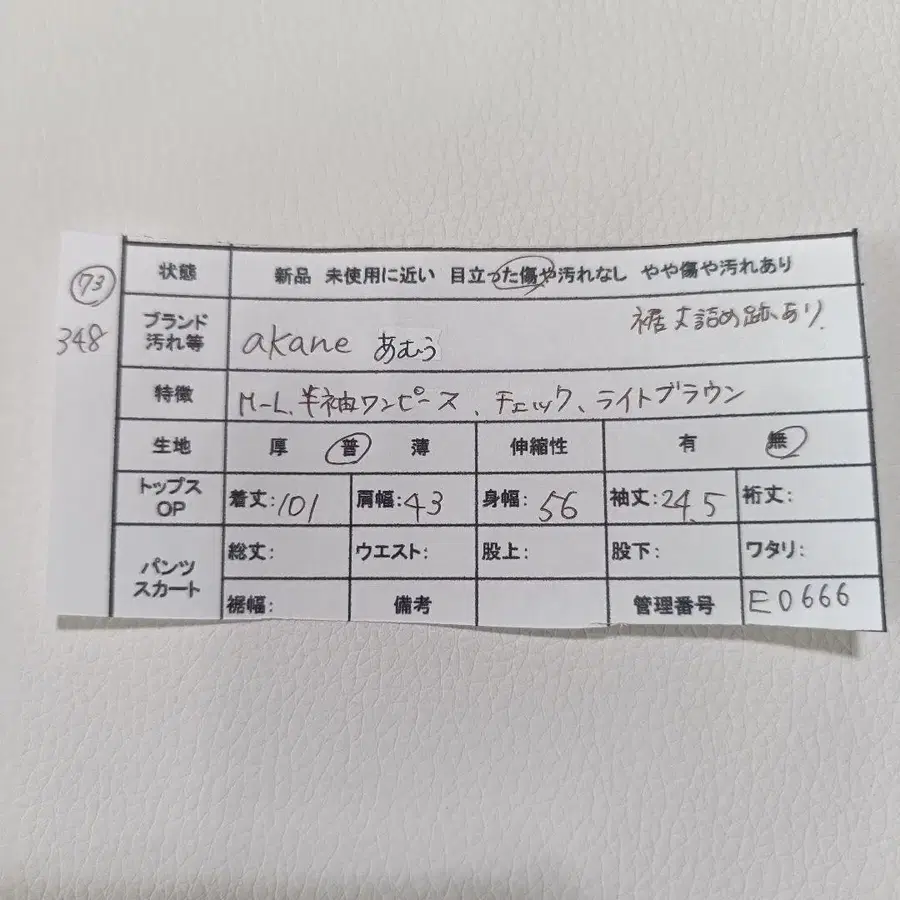 73
348
状態 新品 未使用に近い 目立った傷や汚れなし やや傷や汚れあり
ブランド
汚れ等
akane あむう 裾丈詰め跡あり
特徴 M-L、半袖ワンピース、チェック、ライトブラウン
生地 厚 普 薄 伸縮性 有 無
トップス
OP
着丈:101 肩幅:43 身幅:56 袖丈:24.5 裄丈:
パンツ
スカート
総丈: ウエスト: 股上: 股下: ワタリ:
裾幅: 備考 管理番号 E0666